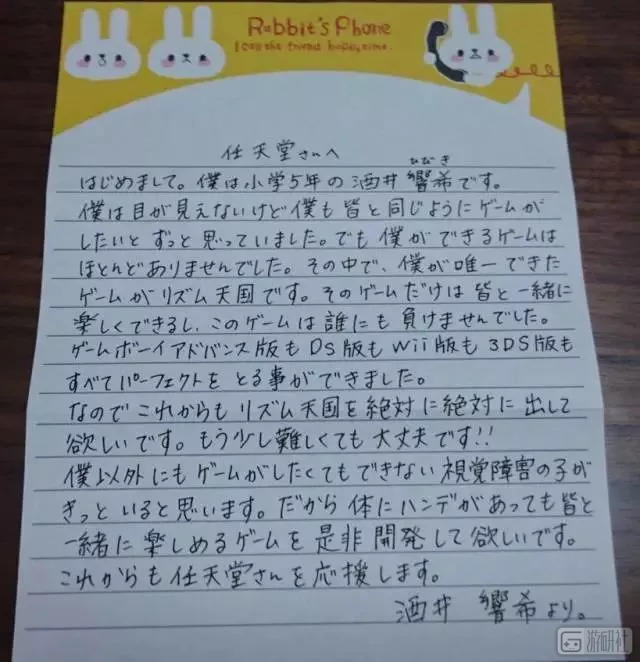 Rabbit's Phone
I call the friend happy time.
任天堂さんへ
ひびき
はじめまして。僕は小学5年の酒井響希です。
僕は目が見えないけど僕も皆と同じようにゲームが
したいとずっと思っていました。でも僕ができるゲームは
ほとんどありませんでした。その中で、僕が唯一できた
ゲームがリズム天国です。そのゲームだけは皆と一緒に
楽しくできるし、このゲームは誰にも負けませんでした。
ゲームボーイアドバンス版もDS版もWii版も3DS版も
すべてパーフェクトをとる事ができました。
なのでこれからもリズム天国を絶対に絶対に出して
欲しいです。もう少し難しくても大丈夫です!!
僕以外にもゲームがしたくてもできない視覚障害の子が
きっといると思います。だから体にハンデがあっても皆と
一緒に楽しめるゲームを是非開発して欲しいです。
これからも任天堂さんを応援します。
酒井 響希より。
游研社